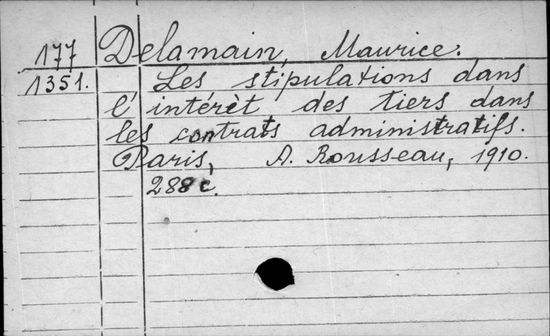 177 Delamain, Maurice.
1351. Les stipulations dans
l'intérêt des tiers dans
les contrats administratifs.
Paris, A. Rousseau, 1910.
288 c.